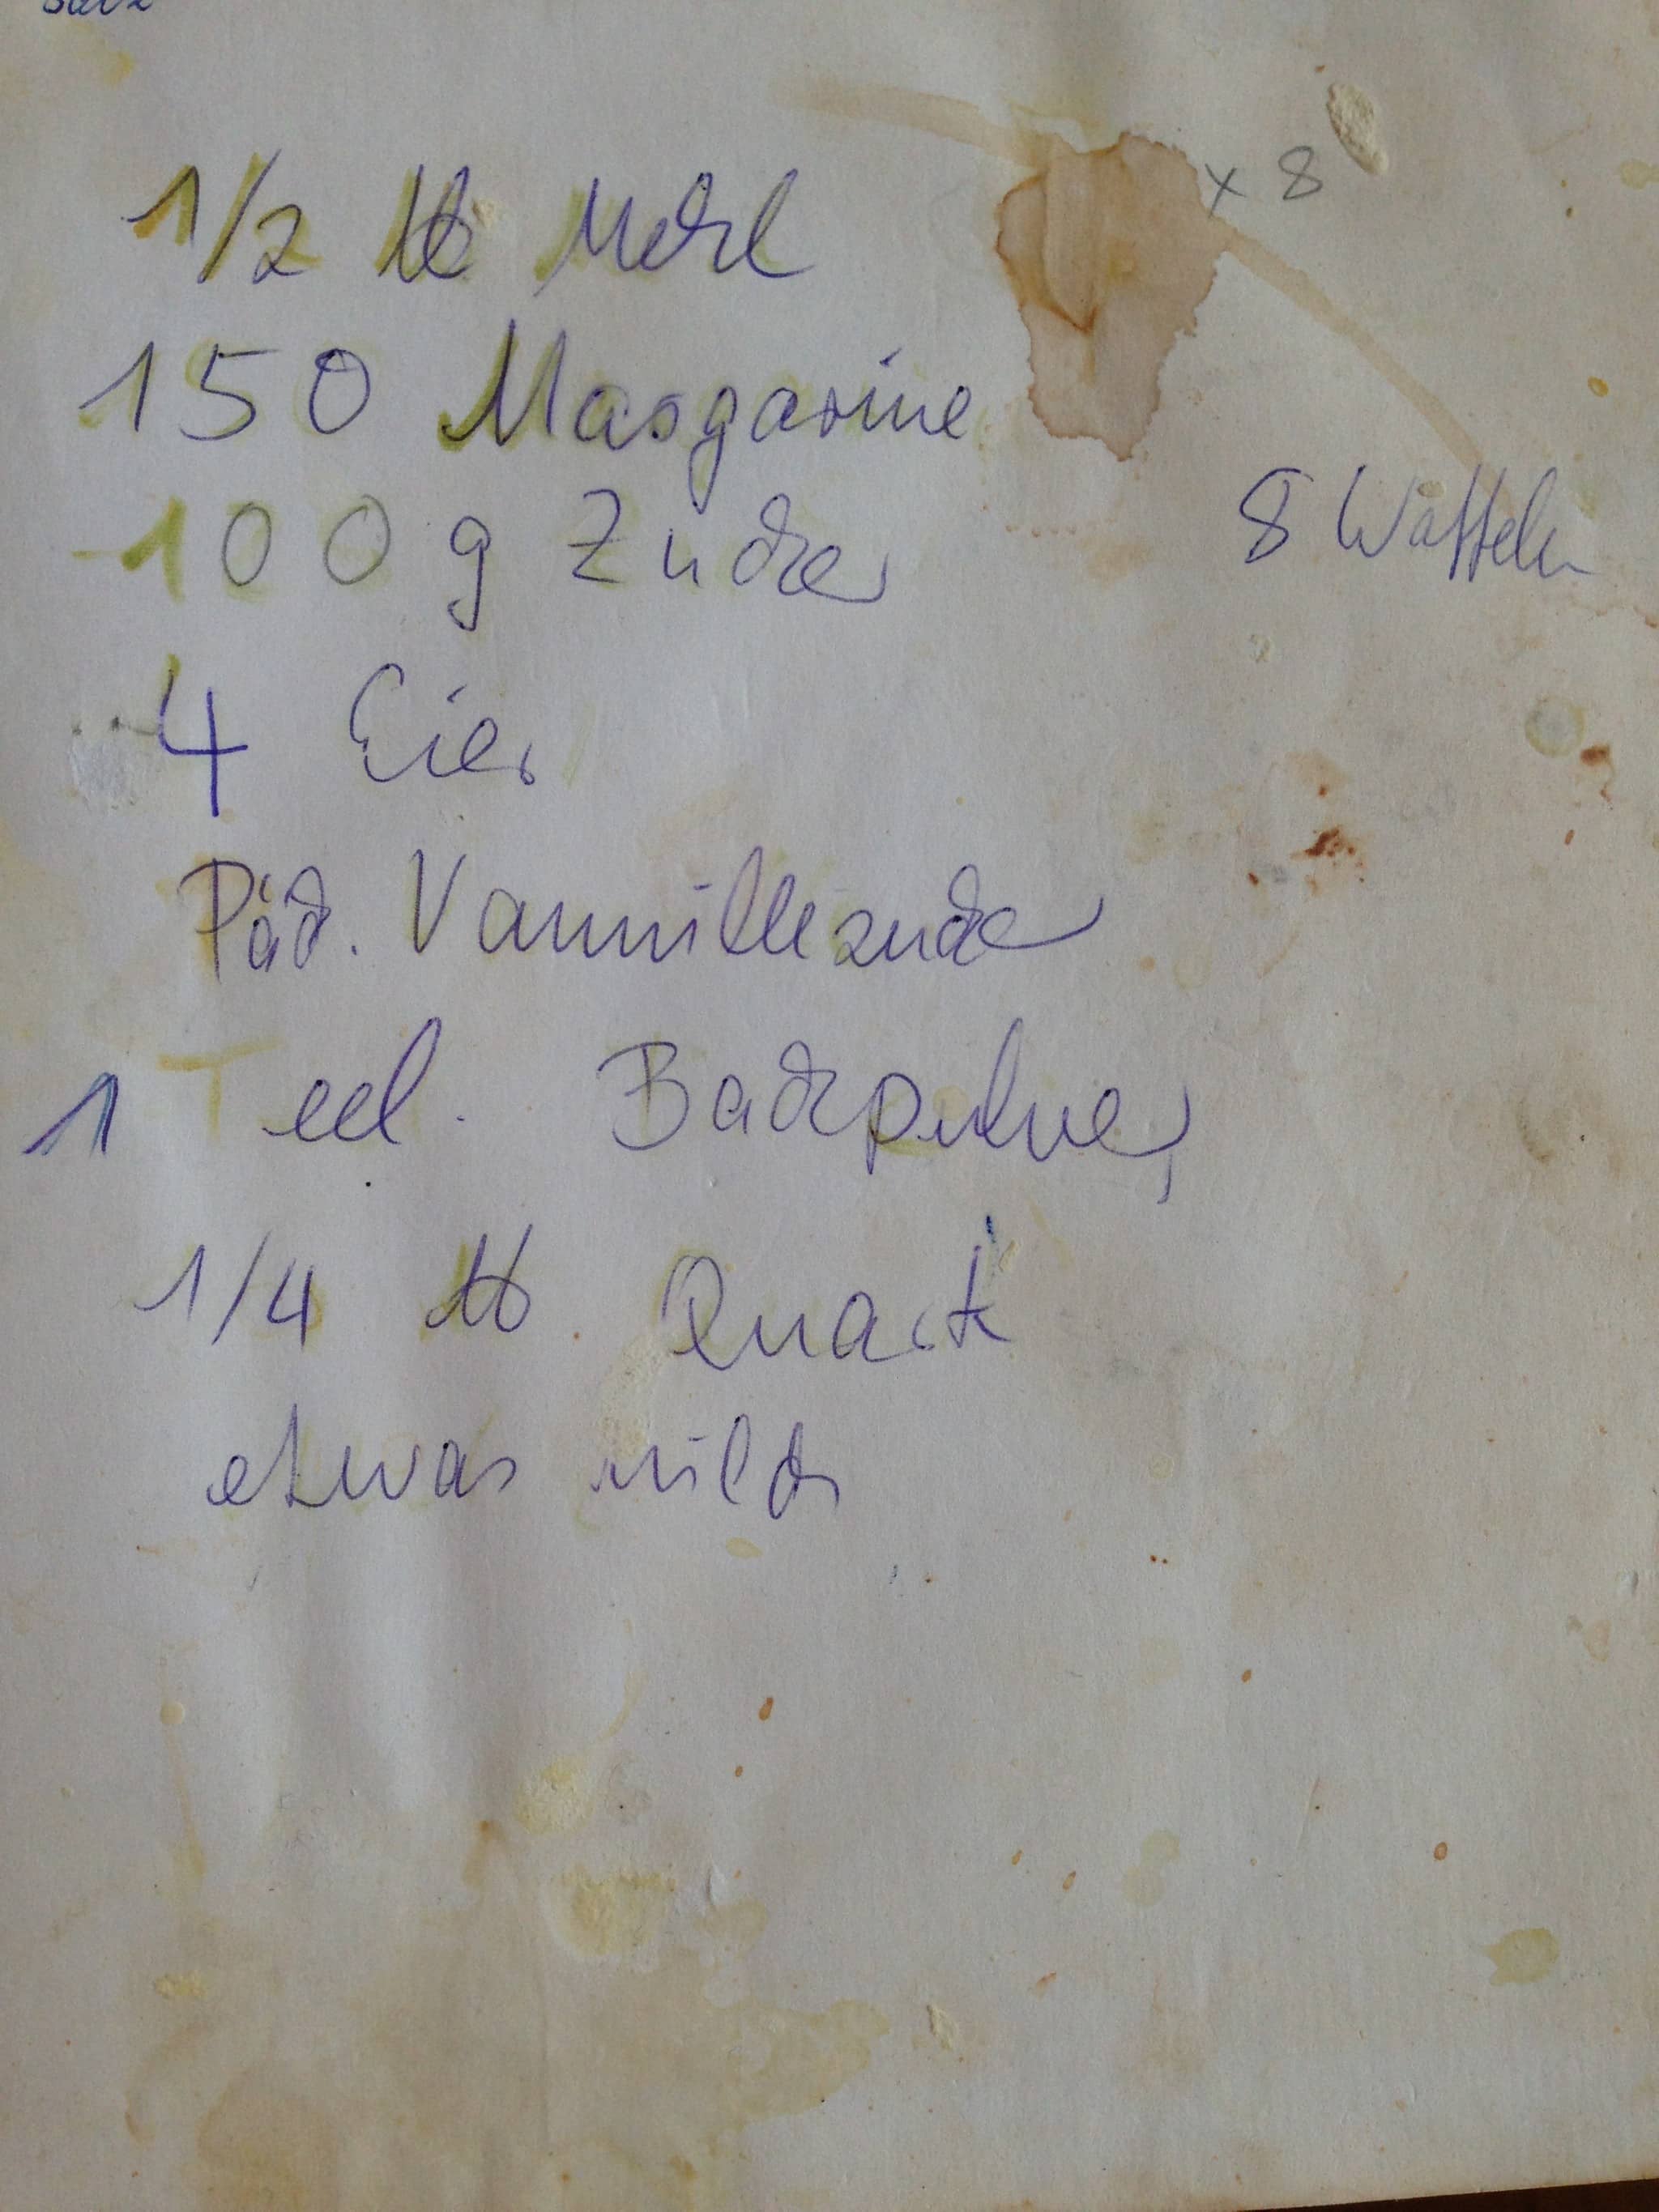 Salz
1/2 ℔ Mehl
x 8
150 Margarine
100 g Zucker
8 Waffeln
4 Eier
Päck. Vannillezucker
1 Teel. Backpulver
1/4 ℔ Quark
etwas milch